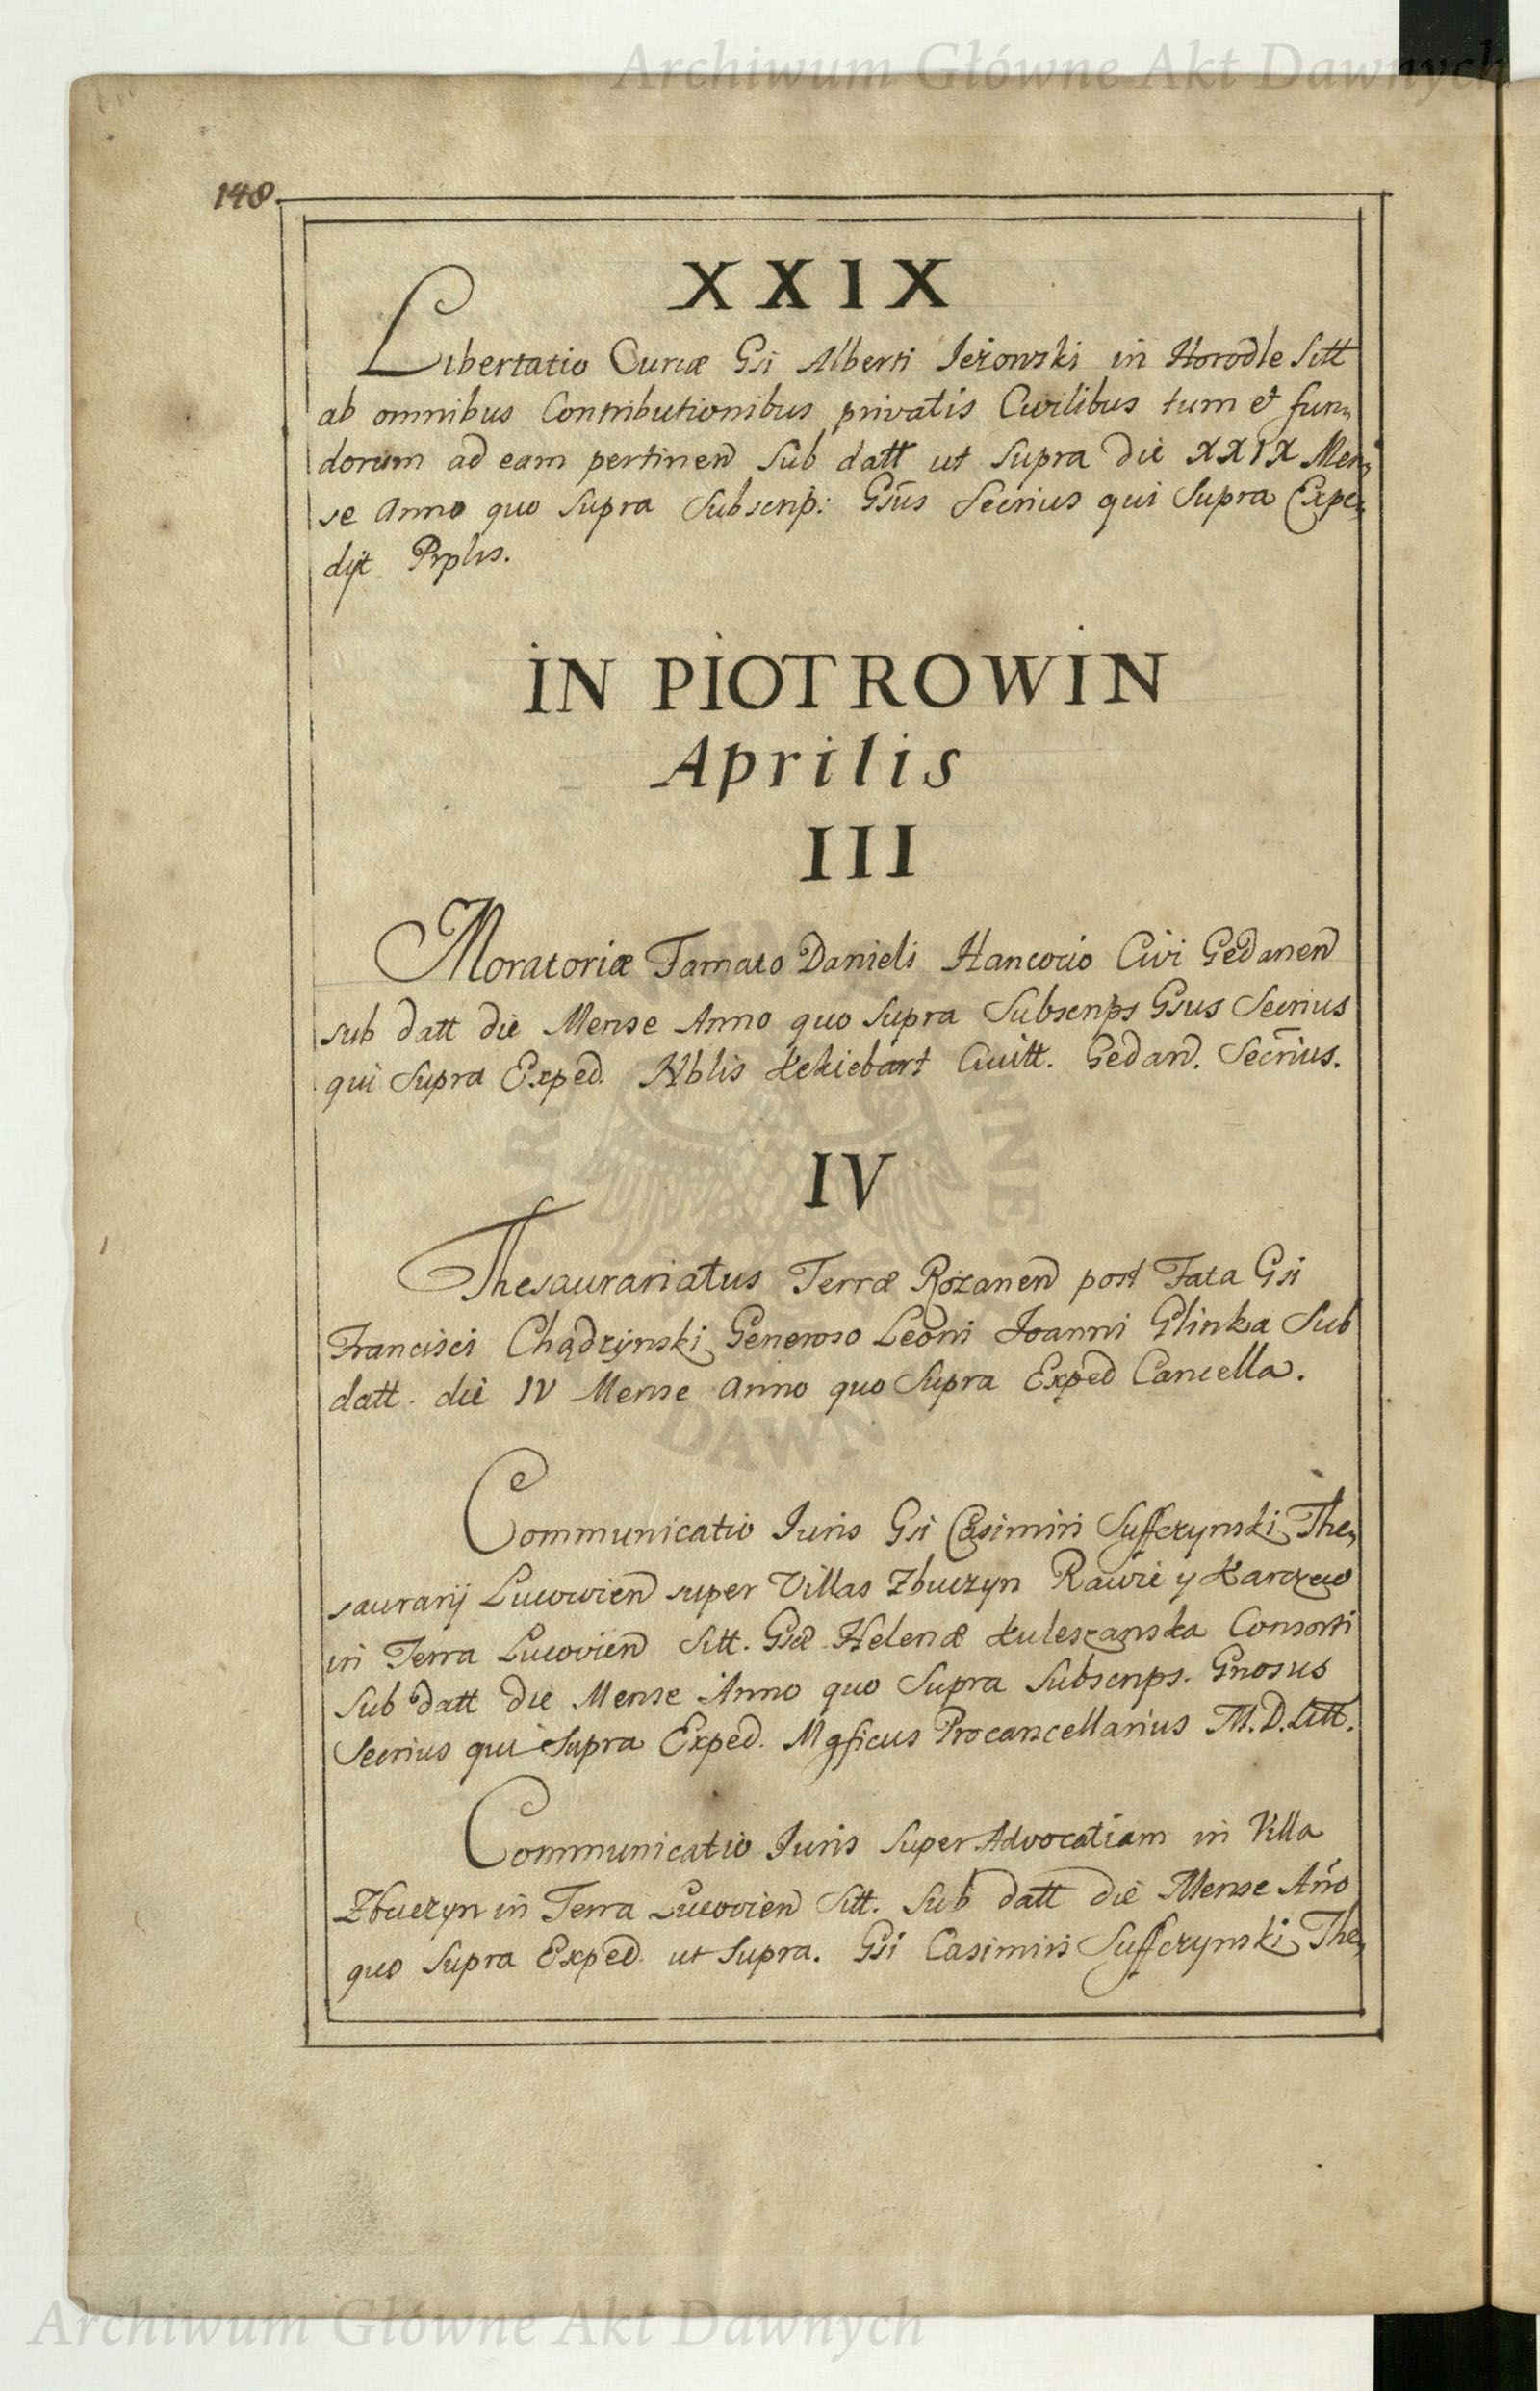 Archiwum Główne Akt Dawnych
148.
XXIX
Libertatio Curiæ Gsi Alberti Jeżowski in Horodle Sitt
ab omnibus Contributionibus privatis Civilibus tum et fun„
dorum ad eam pertinen sub datt ut supra die XXIX Men„
se Anno quo supra Subscrip: Gsus Secrius qui supra Expe„
dijt Prplis.
IN PIOTROWIN
Aprilis
III
Moratoriæ Famato Danieli Hancocio Civi Gedanen
sub datt die Mense Anno quo supra Subscrips Gsus Secrius
qui supra Exped. Nblis Kekiebart Civitt. Gedan. Secrius.
IV
Thesaurariatus Terræ Rożanen post Fata Gsi
Francisci Chądzyński Generoso Leoni Joanni Glinka Sub
datt. die IV Mense Anno quo Supra Exped Cancella.
Communicatio Juris Gsi Casimiri Suffczynski The„
saurarij Lucovien super Villas Zbuczyn Rawie y Karczew
in Terra Lucovien Sitt. Gsæ Helenæ Kuleszanska Consorti
Sub datt die Mense Anno quo Supra Subscrips. Gnosus
Secrius qui Supra Exped. Mgficus Procancellarius M. D. Litt.
Communicatio Juris super Advocatiam in Villa
Zbuczyn in Terra Lucovien Sitt. Sub datt die Mense Año
quo Supra Exped. ut supra. Gsi Casimiri Suffczynski The„
Archiwum Główne Akt Dawnych